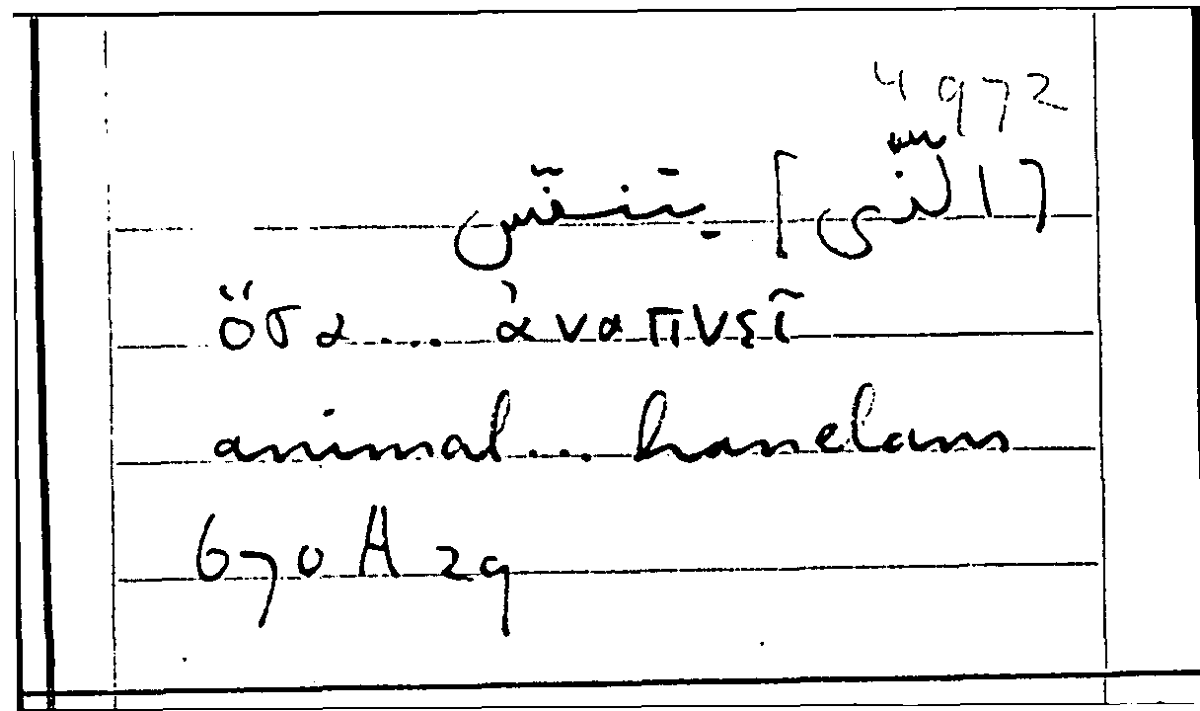 4972
يتنفس
ὅσα ... ἀναπνεῖ
animal ... hanelans
670 A 29